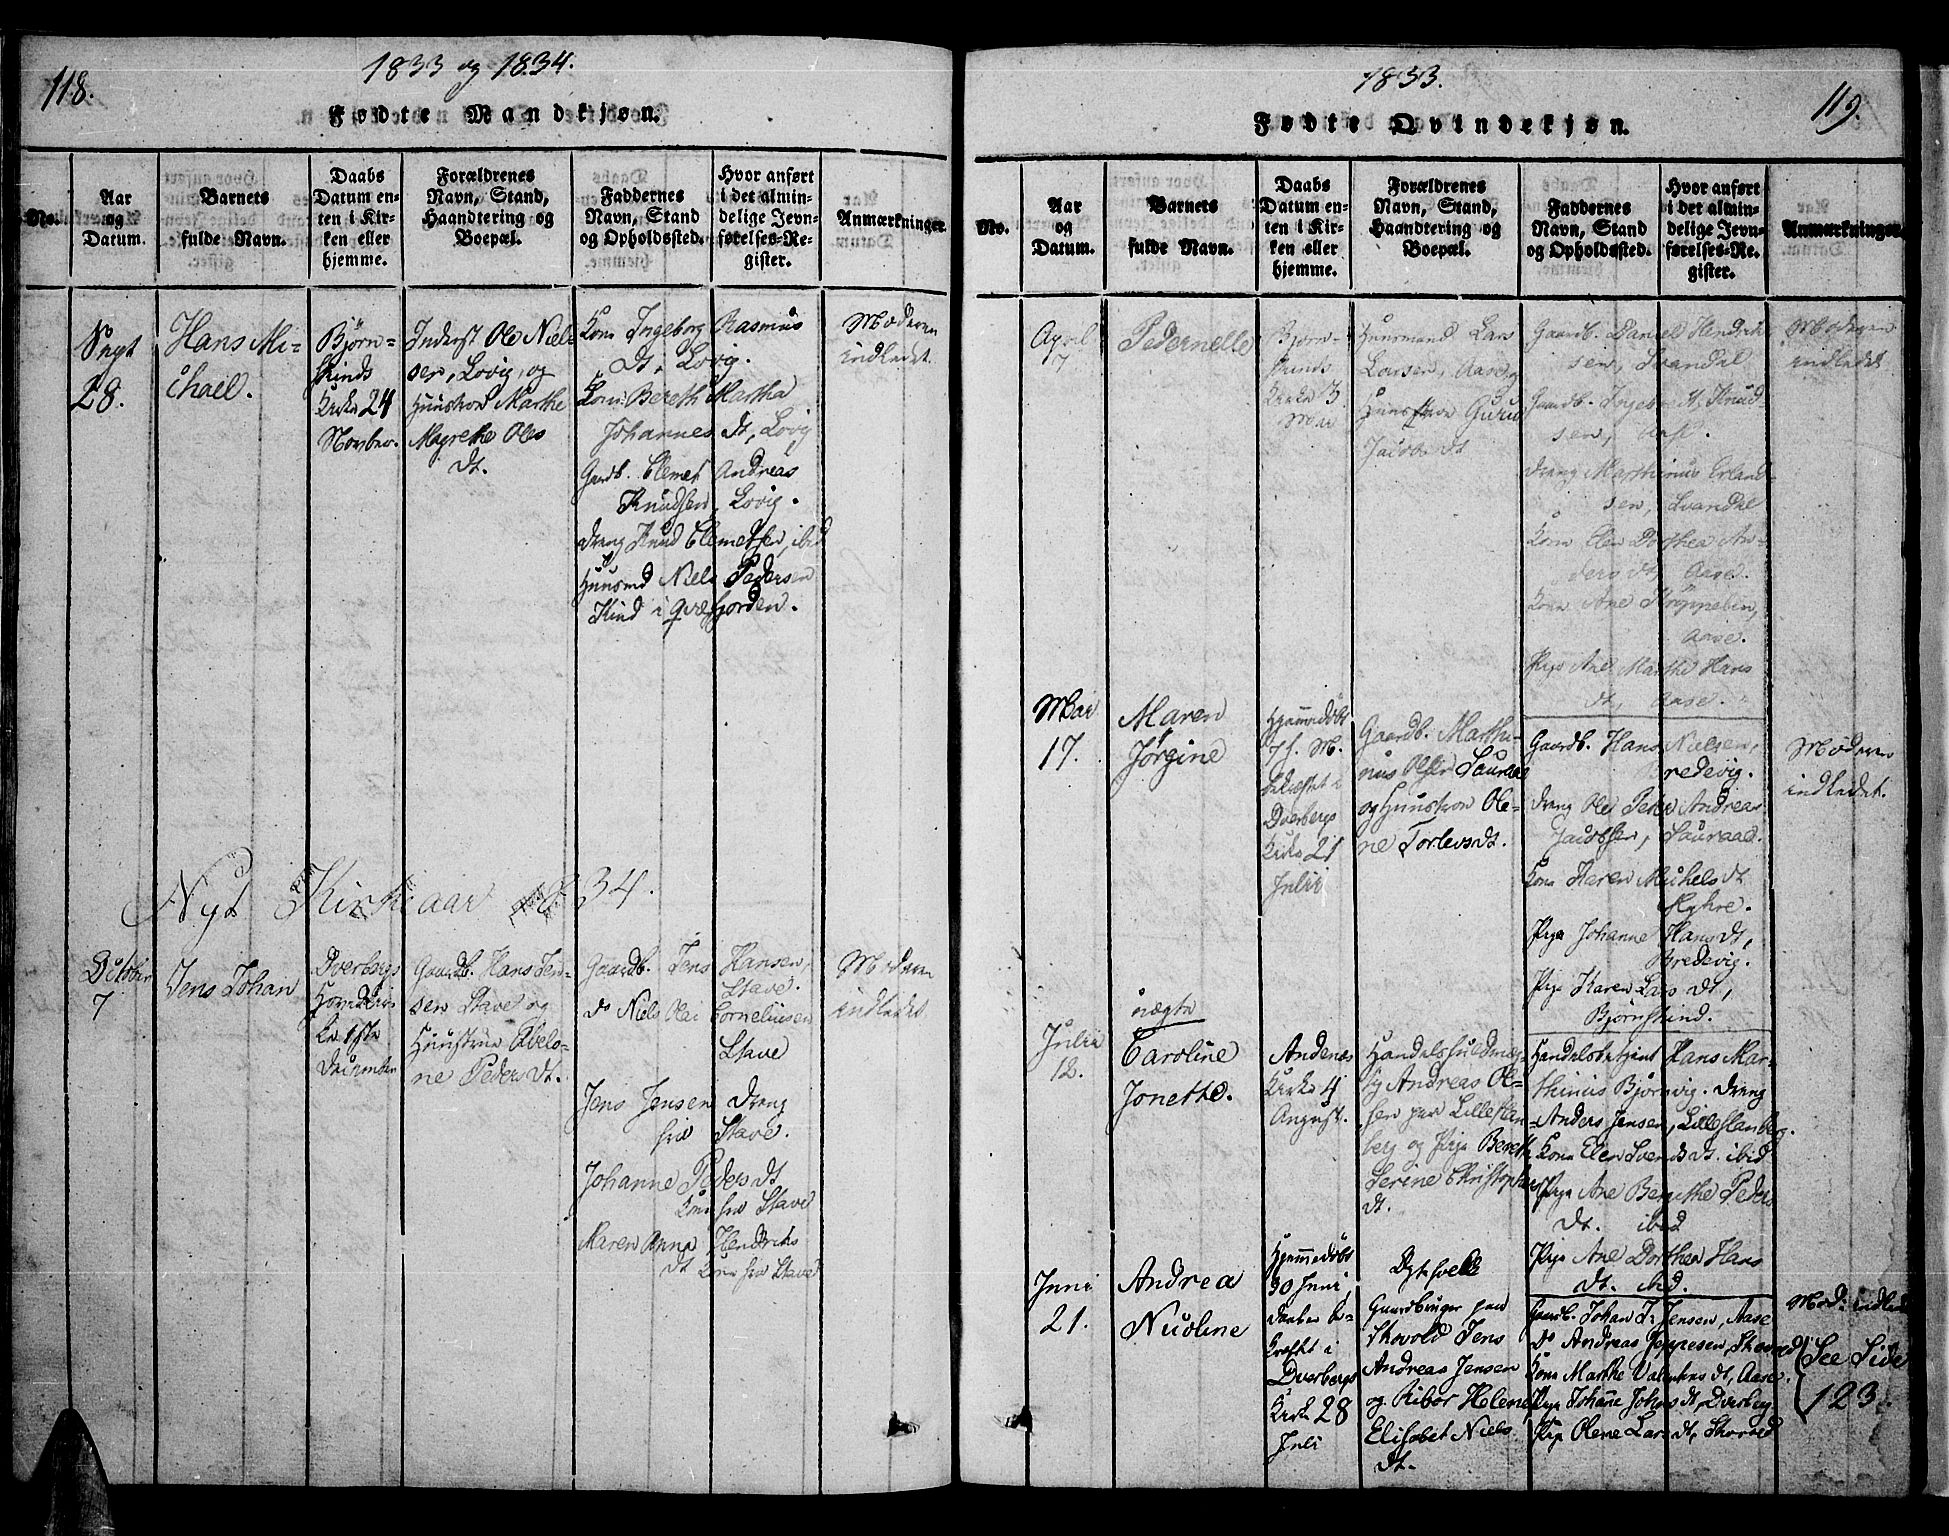 118.
1833 og 1834.
Fødte Mandkjøn.
No.
Aar
og
Datum.
Barnets
fulde Navn.
Daabs
Datum en-
ten i Kir-
ken eller
hjemme.
Forældrenes
Navn, Stand,
Haandtering og
Boepæl.
Faddernes
Navn, Stand
og Opholdssted.
Hvor anført
i det almin-
delige Jevn-
førelses-Re-
gister.
Anmærkninger.
Sept
28.
Hans Mi-
chael.
Bjørn-
skinds
Kirke 24
Novbr.
Inderst Ole Niel-
sen, Lovig, og
Huustroe Marthe
Magrethe Oles
Dt.
Kone Ingeborg Rasmus
Dt, Lovig.
Kone Bereth Martha
Johannes Dt, Lovig
Gaardb. Clemet Andreas
Knudsen, Lovig.
Dreng Knud Clemetsen, ibid
Huusmd Niels Pedersen
Kind i Qvæfjorden.
Moderen
indledet.
Nyt Kirkeaar 1834.
October
7
Jens Johan
Dverbergs
Hovedkir
ke 1ste
December
Gaardb. Hans Jen-
sen Stave og
Huustrue Abelo-
ne Peders Dt.
Gaardb. Jens Hansen,
Stave.
do Niels Olai Cornelius­en
Stave
Jens Jensen Dreng
fra Stave.
Johanne Peders Dt
Kone fra Stave
Maren Anna Hendriks
Dt Kone fra Stave
Moderen
indledet.
1833.
119.
Fødte Qvindekjøn.
No.
Aar
og
Datum.
Barnets
fulde Navn.
Daabs
Datum en-
ten i Kir-
ken eller
hjemme.
Forældrenes
Navn, Stand,
Haandtering og
Boepæl.
Faddernes
Navn, Stand
og Opholdssted.
Hvor anført
i det almin-
delige Jevn-
førelses-Re-
gister.
Anmærkninger.
April
17
Pedernelle
Bjørn-
skinds
Kirke 3
Mai
Huusmand Lars
Larsen, Aase og
Huustroe Guru
Jacobs Dt
Gaardb. Daniel Hendrik
sen, Svandal
Gaardb. Ingebr. H. Knud-
sen, Aase.
Dreng Marthinus Erland-
sen, Svandal
Kone Elen Dorthea An-
ders Dt, Aase.
Kone Ane
Aase.
Pige Ane Marthe Hans
Dt, Aase.
Moderen
indledet
Mai
17.
Maren
Jørgine
Hjemmedøbt
7 f. M.
bekræftet i
Dverbergs
Kirke 21
Julii
Gaardb. Marthi-
nus Olsen Sauraae
og Huustroe Ole-
ne Torlevs Dt.
Gaardb. Hans Nielsen,
Bredevig.
Dreng Ole Peter Andreas
Jacobsen, Sauraae.
Kone Karen Michels Dt
Myhre.
Pige Johanne Hans Dt,
Bredevig.
Pige Karen Lars Dt,
Bjørnskind.
Moderen
indledet.
Julii
12.
uægte
Caroline
Jonette.
Andenæs
Kirke 4
August.
Handelsfuldmæg-
tig Andreas Ol-
sen paa Lilleflan-
berg og Pige Bereth
Serine Christophers
Dt.
Handelsbetjent Hans Mar-
thinus Bjørnvig. Dreng
Anders Jensen, Lilleflanberg.
Kone Elen Svends Dt. ibid
Pige Ane Berethe Peders
Dt. ibid
Pige Ane Dorthea Hans
Dt. ibid.
Juni
21.
Andrea
Nicoline
Hjemmedøbt
30 Juni,
Daaben be-
kræftet i
Dverbergs
Kirke 28
Juli
Gaardbruger paa
Skovold Jens
Andreas Jensen
og Kibor Helene
Elisabet Niels
Dt.
Gaardb. Johan J. Jensen, Aase
Do Andreas Jeppesen, Skovold
Kone Marthe Valentins Dt, Aase.
Pige Johanne Johans Dt, Dverberg
Pige Olene Lars Dt, Skovold
Mod: indled
See Side
123.